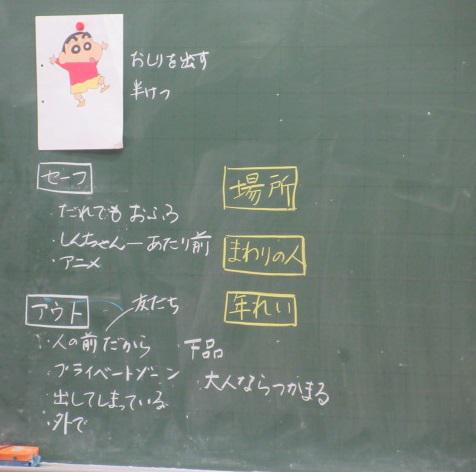 おしりを出す
半けつ
セーフ
・だれでもおふろ
・しんちゃんーあたり前
・アニメ
場所
まわりの人
年れい
アウト
友だち
・人の前だから
・プライベートゾーン
・出してしまっている
・外で
下品
大人ならつかまる